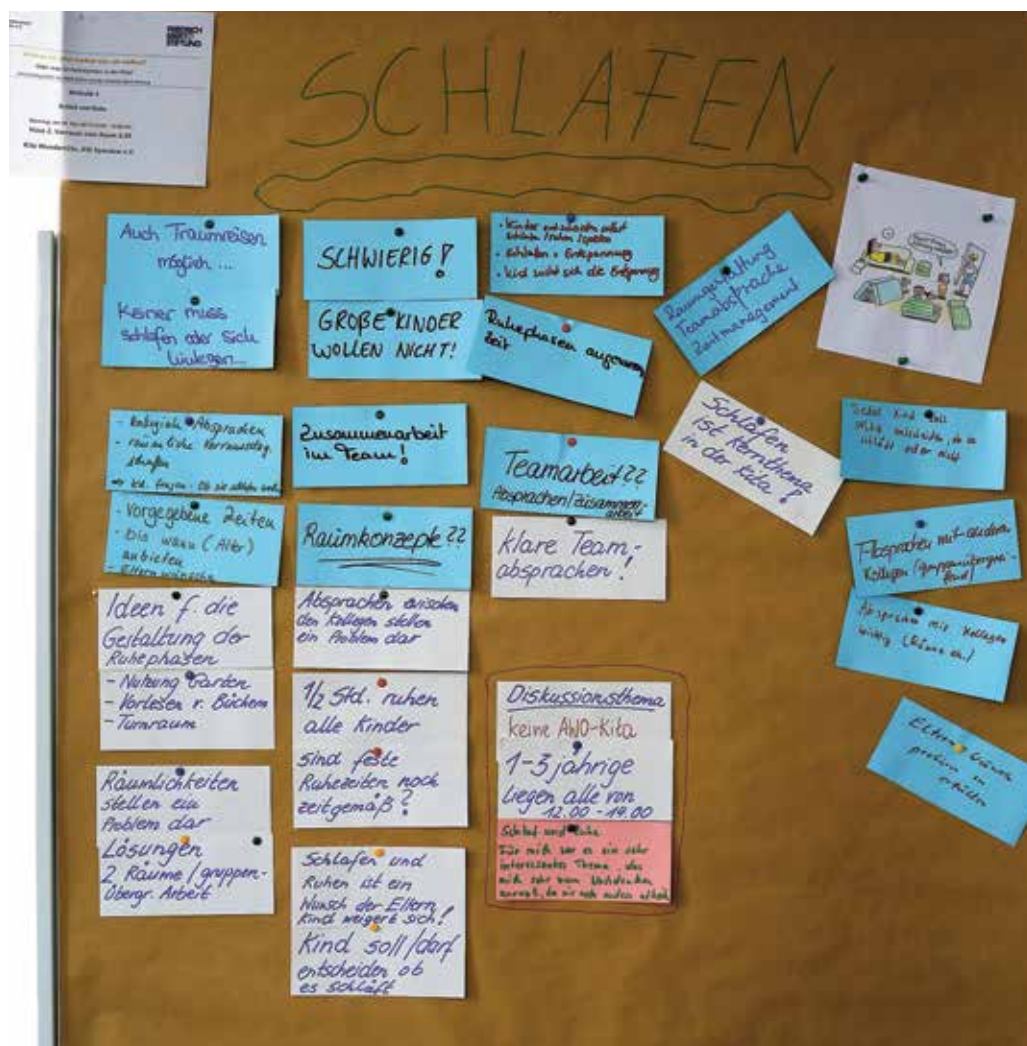 FRIEDRICH
EBERT
STIFTUNG
SCHLAFEN
Auch Traumreisen
möglich ...
Keiner muss
schlafen oder sich
hinlegen...
- Absprachen
- räumliche
schaffen
- Vorgegebene Zeiten
- bis wann (Alter)
anbieten
- Elternwünsche
Ideen f. die
Gestaltung der
Ruhephasen
- Nutzung Garten
- Vorlesen v. Büchern
- Turnraum
Räumlichkeiten
stellen ein
Problem dar
Lösungen
2 Räume/gruppen-
übergr. Arbeit
SCHWIERIG!
GROßE KINDER
WOLLEN NICHT!
Zusammenarbeit
im Team!
Raumkonzepte??
Absprachen zwischen
den Kollegen stellen
ein Problem dar
1/2 Std. ruhen
alle Kinder
sind feste
Ruhezeiten noch
zeitgemäß?
Schlafen und
Ruhen ist ein
Wunsch der Eltern
Kind weigert sich!
Kind soll/darf
entscheiden ob
es schläft
• Kinder entscheiden selbst
schlafen/ruhen/spielen
• schlafen = Entspannung
• Kind sucht sich die Entspannung
Ruhephasen
Zeit
Teamarbeit??
Absprachen/Zusammen-
arbeit
klare Team-
absprachen!
Diskussionsthema
keine AWO-Kita
1-3 jährige
liegen alle von
12.00 - 14.00
Schlaf und Ruhe
Für mich war es ein sehr
interessantes Thema, das
mich sehr zum Nachdenken
Raumgestaltung
Teamabsprache
Zeitmanagement
Schlafen
ist Kernthema
in der Kita!
Jedes Kind soll
selbst entscheiden, ob es
schläft oder nicht
Absprachen mit anderen
Kollegen (gruppenübergrei-
fend)
Absprachen mit Kollegen
wichtig
Eltern